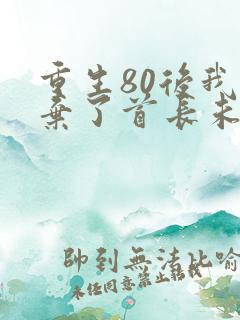 重生80後我
棄了首長未
帥到無法比喻
未經同意禁止轉載